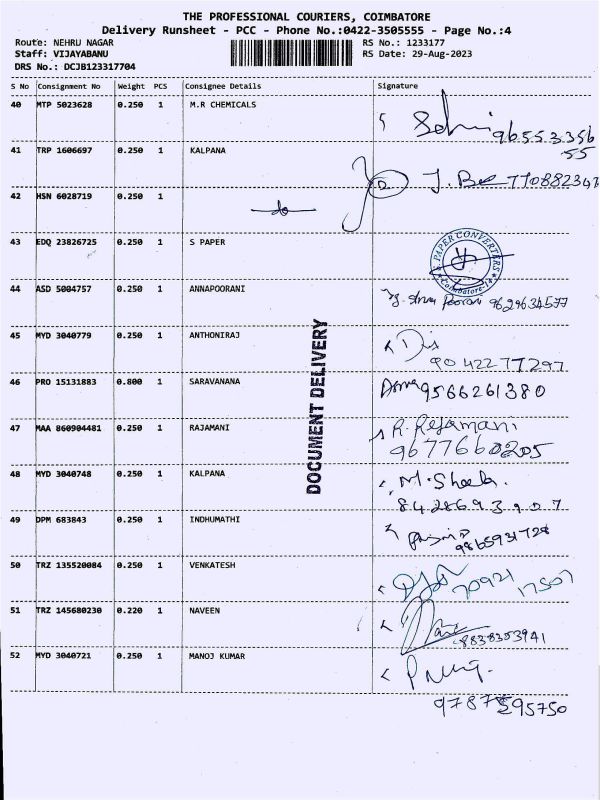 THE PROFESSIONAL COURIERS, COIMBATORE
Delivery Runsheet - PCC - Phone No.:0422-3505555 - Page No.:4
Route: NEHRU NAGAR RS No.: 1233177
Staff: VIJAYABANU RS Date: 29-Aug-2023
DRS No.: DCJB123317704
S No Consignment No Weight PCS Consignee Details Signature
40 MTP 5023628 0.250 1 M.R CHEMICALS
96553356
55
41 TRP 1606697 0.250 1 KALPANA
42 HSN 6028719 0.250 1
43 EDQ 23826725 0.250 1 S PAPER
S. PAPER CONVERTERS
Coimbatore-14
44 ASD 5004757 0.250 1 ANNAPOORANI
9629634577
45 MYD 3040779 0.250 1 ANTHONIRAJ
9042277297
46 PRO 15131883 0.800 1 SARAVANANA
9566261380
47 MAA 860904481 0.250 1 RAJAMANI
R. Rejamani
9677660205
48 MYD 3040748 0.250 1 KALPANA
M. Sheela
8428693907
49 DPM 683843 0.250 1 INDHUMATHI
9865931728
50 TRZ 135520084 0.250 1 VENKATESH
70921
17507
51 TRZ 145680230 0.220 1 NAVEEN
8838353941
52 MYD 3040721 0.250 1 MANOJ KUMAR
DOCUMENT DELIVERY